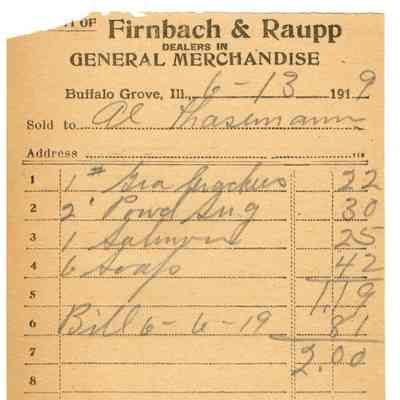 OF Firnbach & Raupp
DEALERS IN
GENERAL MERCHANDISE
Buffalo Grove, Ill., 6-13 1919
Sold to Al Thasemann
Address
1 1# Gra Crackers 22
2 2' Powd Sug 30
3 1 Salmon 25
4 6 Soaps 42
5 1.19
6 Bill 6-6-19 81
7 2.00
8